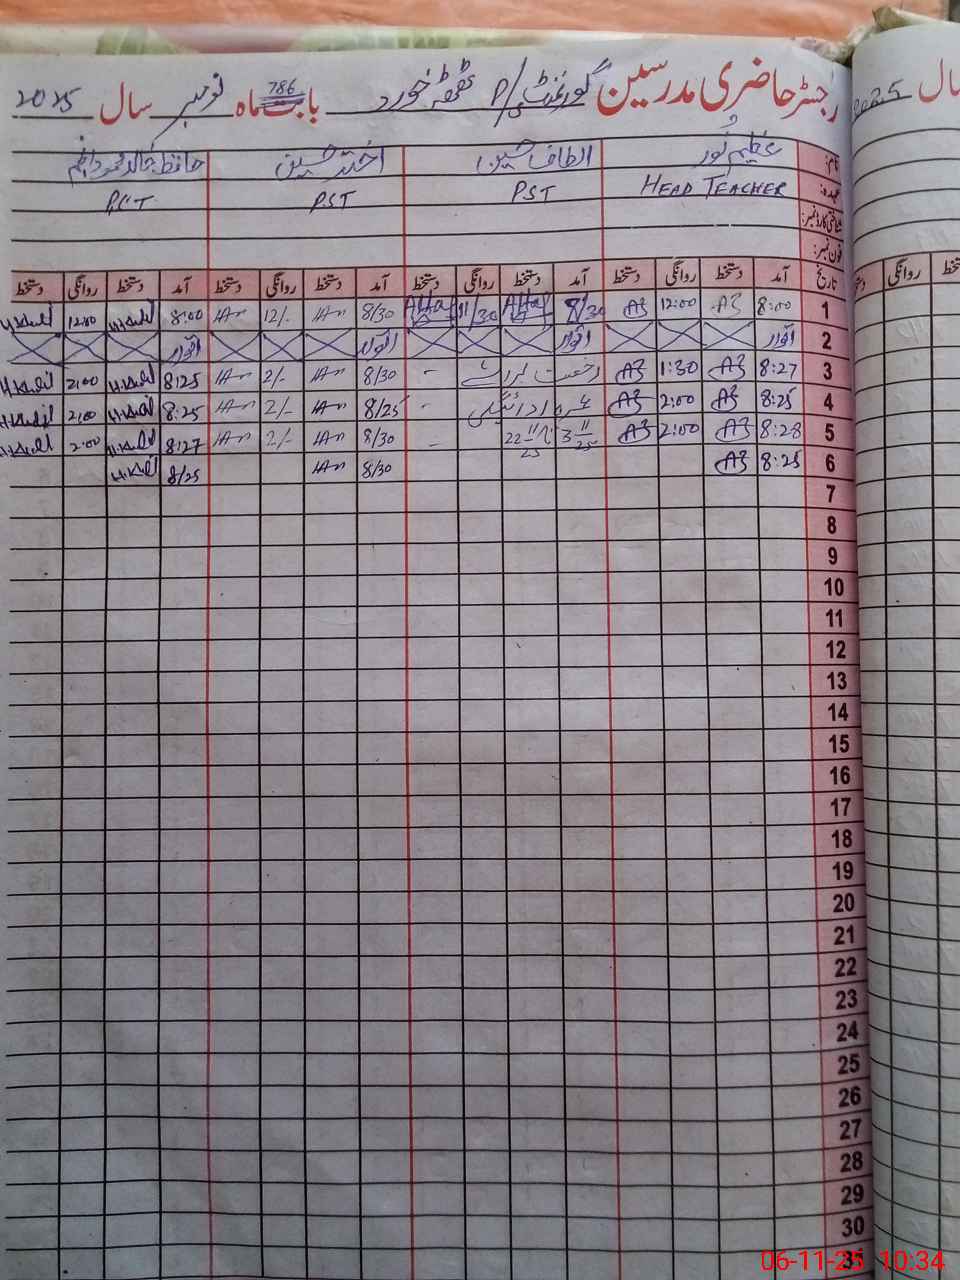 رجسٹر حاضری مدرسین گورنمنٹ P/S ٹھٹھہ خورد بابت ماہ نومبر سال 2025
786
نام: عظیم نور الطاف حسین اختر حسین حافظ خالد محمود
عہدہ: HEAD TEACHER PST PST PST
شناختی کارڈ نمبر:
فون نمبر:
تاریخ آمد دستخط روانگی دستخط آمد دستخط روانگی دستخط آمد دستخط روانگی دستخط آمد دستخط روانگی دستخط
1 8:00 AZ 12:00 AZ 8/30 Altaf 11/30 Altaf 8/30 IAn 12/- IAn 8:00 H.Khalil 12:00 H.Khalil
2 اتوار اتوار اتوار اتوار
3 8:27 AZ 1:30 AZ رخصت برائے - 8/30 IAn 2/- IAn 8:25 H.Khalil 2:00 H.Khalil
4 8:25 AZ 2:00 AZ عمرہ ادائیگی - 8/25 IAn 2/- IAn 8:25 H.Khalil 2:00 H.Khalil
5 8:28 AZ 2:00 AZ 3 11/25 تا 22-11/25 - 8/30 IAn 2/- IAn 8:27 H.Khalil 2:00 H.Khalil
6 8:25 AZ 8/30 IAn 8/25 H.Khalil
7
8
9
10
11
12
13
14
15
16
17
18
19
20
21
22
23
24
25
26
27
28
29
30
سال 2025
روانگی
06-11-25 10:34